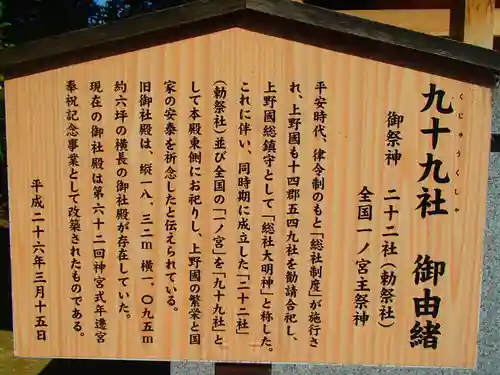 九十九社 御由緒
くじゅうくしゃ
御祭神 二十二社(勅祭社)
全国一ノ宮主祭神
平安時代、律令制のもと「総社制度」が施行さ
れ、上野國も十四郡五四九社を勧請合祀し、
上野國総鎮守として「総社大明神」と称した。
これに伴い、同時期に成立した「二十二社」
(勅祭社)並び全国の「一ノ宮」を「九十九社」と
して本殿東側にお祀りし、上野國の繁栄と国
家の安泰を祈念したと伝えられている。
旧御社殿は、縦一八、三二m 横一、〇九五m
約六坪の横長の御社殿が存在していた。
現在の御社殿は第六十二回神宮式年遷宮
奉祝記念事業として改築されたものである。
平成二十六年三月十五日